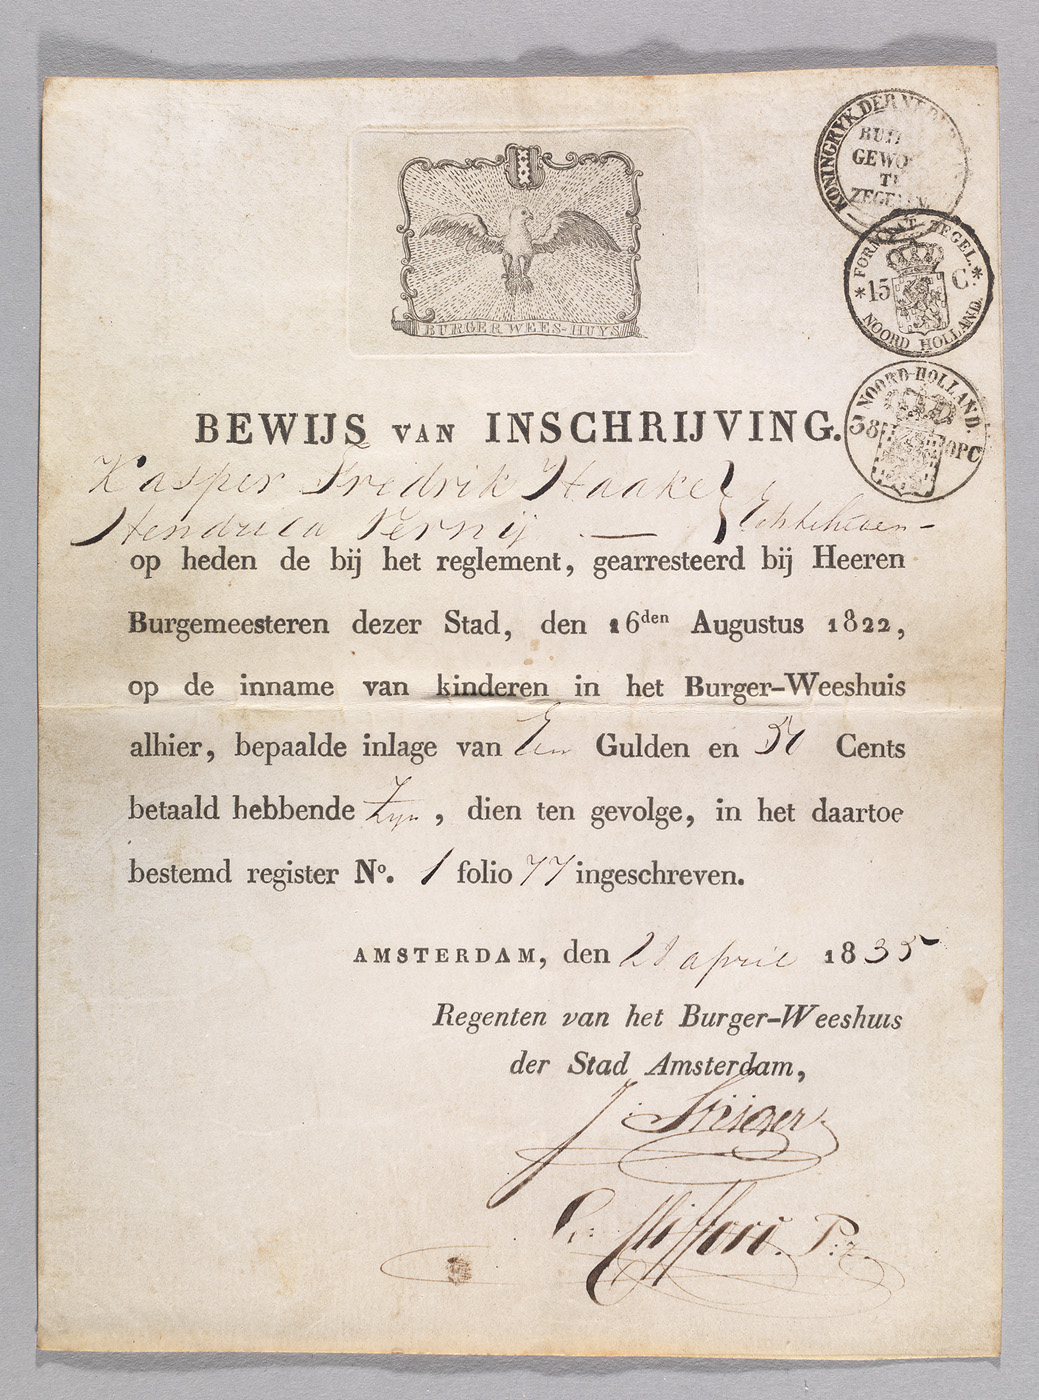 BURGER WEES-HUYS
KONINGRYK DER NEDER
BUI
GEWO
TE
ZEGELEN.
* FORMAAT-ZEGEL. *
15 C.
NOORD HOLLAND.
NOORD-HOLLAND.
38 OPC
BEWIJS VAN INSCHRIJVING.
Kasper Fredrik Haake
Hendrica Vernij — Echtelieden —
op heden de bij het reglement, gearresteerd bij Heeren
Burgemeesteren dezer Stad, den 16den Augustus 1822,
op de inname van kinderen in het Burger-Weeshuis
alhier, bepaalde inlage van Een Gulden en 50 Cents
betaald hebbende Zijn, dien ten gevolge, in het daartoe
bestemd register No. 1 folio 77 ingeschreven.
AMSTERDAM, den 28 april 1835
Regenten van het Burger-Weeshuis
der Stad Amsterdam,
J:
Clifford. P:z.